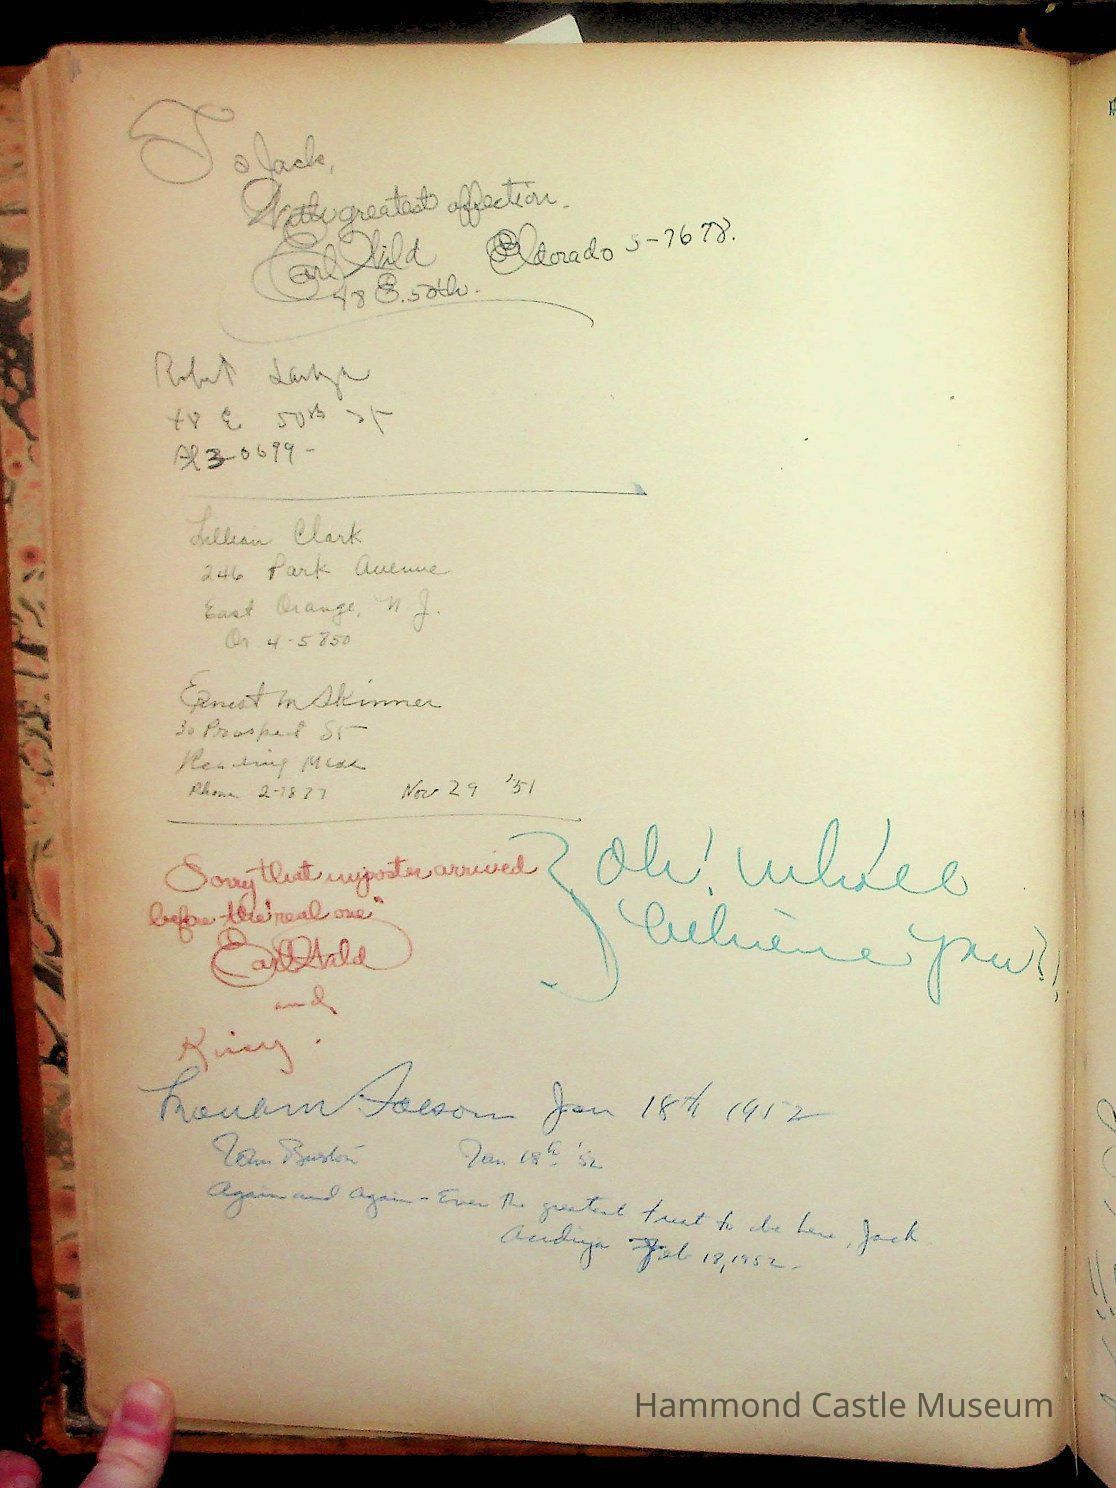 To Jack,
With greatest affection.
Earl Wild Eldorado 5-7678.
48 E. 50th.
Robert
48 E. 50th St
El 3-0699-
Lillian Clark
246 Park Avenue
East Orange, N J.
Or 4-5850
Ernest M Skinner
30 Prospect St
Reading Mass
Phone 2-1827 Nov 29 '51
Sorry that imposter arrived
before the "real one"
Earl Wild
and
Oh!
you?!
Jan 18th 1952
Tom Jan 18th '52
Again and Again - Ever the greatest treat to be here, Jack
Feb 18, 1952-
Hammond Castle Museum